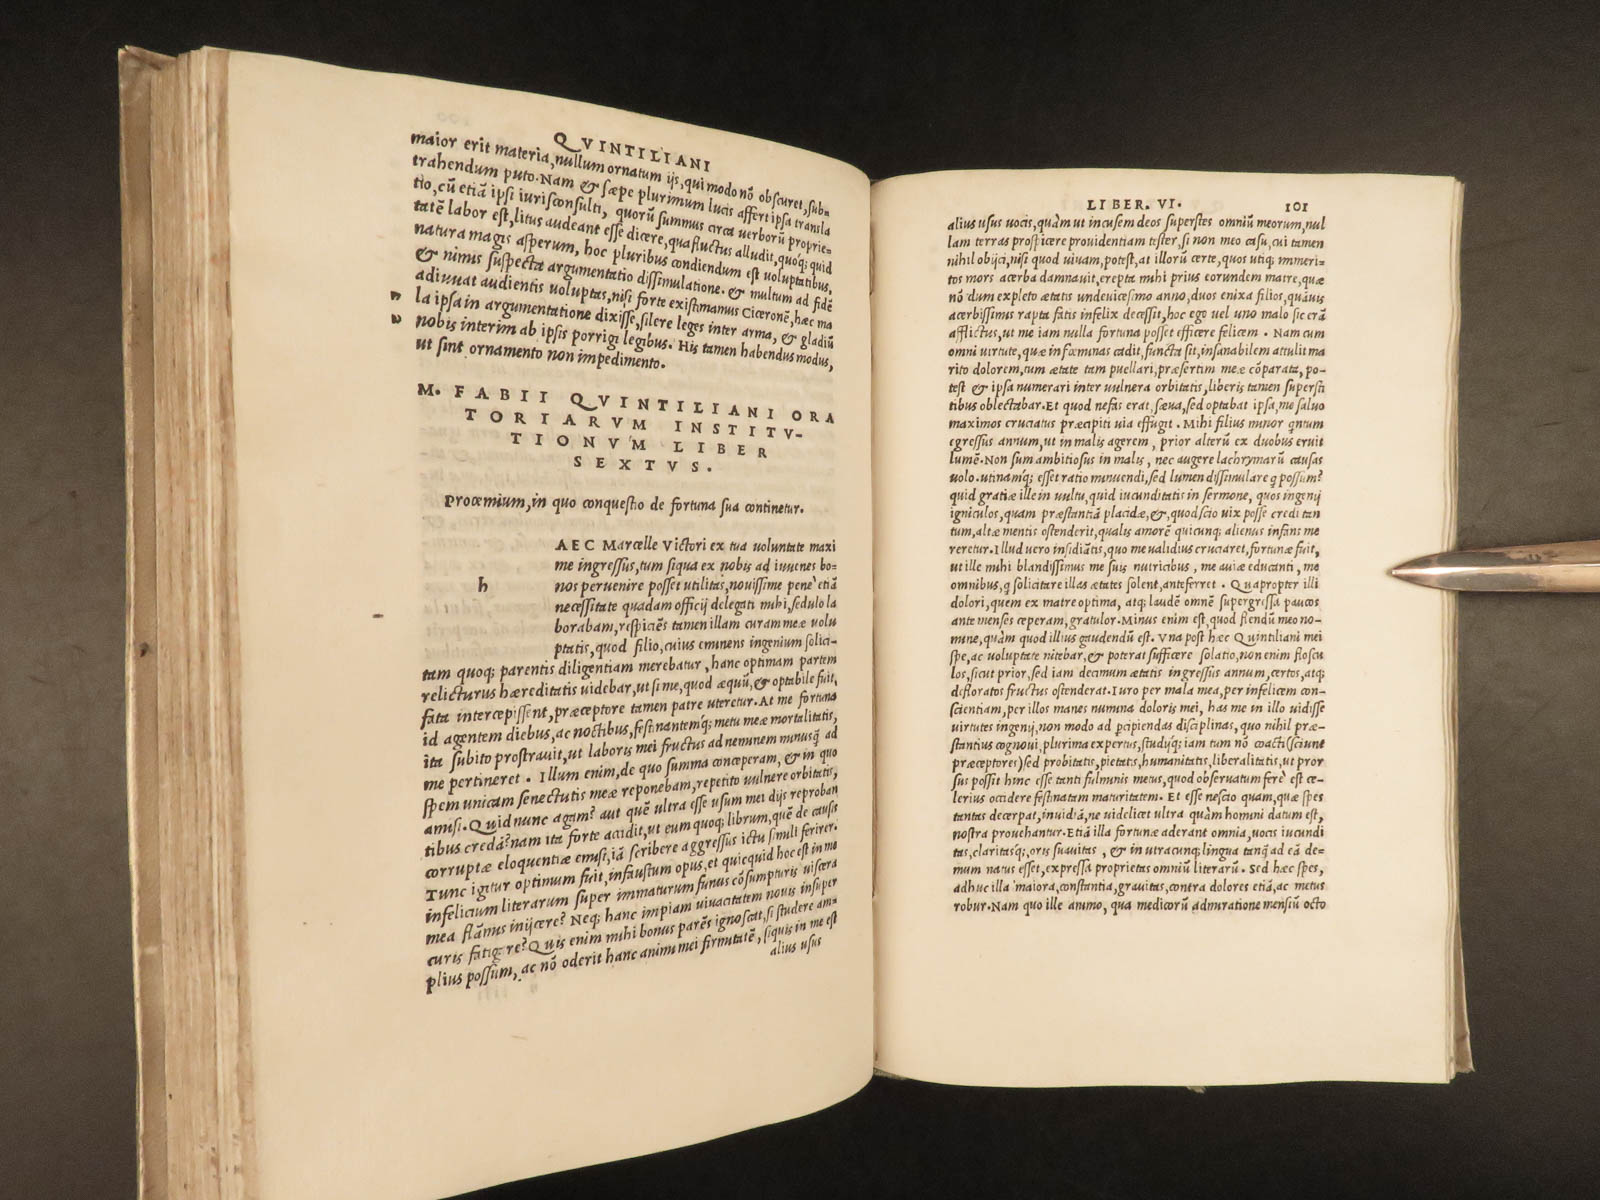 QVINTILIANI
maior erit materia, nullum ornatum ijs, qui modo nõ obscuret, sub-
trahendum puto. Nam & sæpe plurimum lucis affert ipsa transla
tio, cũ etiã ipsi iurisconsulti, quorũ summus circa uerborũ proprie-
tatẽ labor est, litus audeant esse dicere, qua fluctus alludit, quóq; quid
natura magis asperum, hoc pluribus condiendum est uoluptatibus,
& nimus suspecta argumentatio dissimulatione. & multum ad fidẽ
adiuuat audientis uoluptas, nisi forte existimamus Ciceronẽ, hæc ma
la ipsa in argumentatione dixisse, silere leges inter arma, & gladiũ
nobis interim ab ipsis porrigi legibus. His tamen habendus modus,
ut sint ornamento non impedimento.
M. FABII QVINTILIANI ORA
TORIARVM INSTITV-
TIONVM LIBER
SEXTVS.
Procemium, in quo conquestio de fortuna sua continetur.
h
AEC Marcelle Victori ex tua uoluntate maxi
me ingressus, tum siqua ex nobis ad iuuenes bo-
nos peruenire posset utilitas, nouissime penè etiã
necessitate quadam officij delegati mihi, sedulo la
borabam, respiciẽs tamen illam curam meæ uolu
ptatis, quod filio, cuius eminens ingenium solici-
tam quoq; parentis diligentiam merebatur, hanc optimam partem
relicturus hæreditatis uidebar, ut si me, quod æquũ, & optabile fuit,
fata intercepissent, præceptore tamen patre uteretur. At me fortuna
id agentem diebus, ac noctibus, festinantemq; metu meæ mortalitatis,
ita subito prostrauit, ut laboris mei fructus ad neminem minusq̃ ad
me pertineret. Illum enim, de quo summa conceperam, & in quo
spem unicam senectutis meæ reponebam, repetito uulnere orbitatis,
amisi. Quid nunc agam? aut quẽ ultra esse usum mei dijs reproban
tibus credã? nam ita forte accidit, ut eum quoq; librum, quẽ de causis
corruptæ eloquentiæ emisi, iã scribere aggressus ictu simili ferirer.
Tunc igitur optimum fuit, infaustum opus, et quicquid hoc est in me
infelicium literarum super immaturum funus cõsumpturis uiscera
mea flãmis inijcere? Neq; hanc impiam uiuacitatem nouis insuper
curis fatigare? Quis enim mihi bonus parẽs ignoscat, si studere am-
plius possum, ac nõ oderit hanc animi mei firmitatẽ, siquis in me est
alius usus
LIBER. VI. 101
alius usus uocis, quàm ut incusem deos superstes omniũ meorum, nul
lam terras prospicere prouidentiam tester, si non meo casu, cui tamen
nihil obijci, nisi quod uiuam, potest, at illorũ certe, quos utiq; immeri-
tos mors acerba damnauit, erepta mihi prius eorundem matre, quæ
nõ dum expleto ætatis undeuicesimo anno, duos enixa filios, quãuis
acerbissimis rapta fatis infelix decessit, hoc ego uel uno malo sic erã
afflictus, ut me iam nulla fortuna posset efficere felicem. Nam cum
omni uirtute, quæ in fœminas cadit, functa sit, insanabilem attulit ma
rito dolorem, tum ætate tam puellari, præsertim meæ cõparata, po-
test & ipsa numerari inter uulnera orbitatis, liberis tamen supersti
tibus oblectabar. Et quod nefas erat, sæua, sed optabat ipsa, me saluo
maximos cruciatus præcipiti uia effugit. Mihi filius minor q̃ntum
egressus annum, ut in malis agerem, prior alterũ ex duobus eruit
lumẽ. Non sum ambitiosus in malis, nec augere lachrymarũ causas
uolo. utinamq; esset ratio minuendi, sed lumen dissimulare q̃ possum?
quid gratiæ ille in uultu, quid iucunditatis in sermone, quos ingenij
igniculos, quam præstantiã placidæ, &, quod scio uix posse credi tan
tum, altæ mentis ostenderit, qualis amorẽ quicunq; alienus infans me
reretur. Illud uero insidiãtis, quo me ualidius cruciaret, fortunæ fuit,
ut ille mihi blandissimus me suis nutricibus, me auiæ educanti, me
omnibus, q̃ solicitare illas ætates solent, anteferret. Quapropter illi
dolori, quem ex matre optima, atq; laudẽ omnẽ supergressa paucos
ante menses ceperam, gratulor. Minus enim est, quod flendũ meo no-
mine, quàm quod illius gaudendũ est. Vna post hæc Quintiliani mei
spe, ac uoluptate nitebar, & poterat sufficere solatio, non enim floscu
los, sicut prior, sed iam decimum ætatis ingressus annum, certos, atq;
defloratos fructus ostenderat. Iuro per mala mea, per infelicem con-
scientiam, per illos manes numina doloris mei, has me in illo uidisse
uirtutes ingenij, non modo ad pcipiendas disciplinas, quo nihil præ-
stantius cognoui, plurima expertus, studijq; iam tum nõ coacti (sciunt
præceptores) sed probitatis, pietatis, humanitatis, liberalitatis, ut pror
sus possit hinc esse tanti fulminis metus, quod obseruatum ferè est ce-
lerius occidere festinatam maturitatem. Et esse nescio quam, quæ spes
tantas decerpat, inuidiã, ne uidelicet ultra quàm homini datum est,
nostra prouehantur. Etiã illa fortunæ aderant omnia, uocis iucundi
tas, claritasq; oris suauitas, & in utracunq; lingua tanq̃ ad eã de-
mum natus esset, expressa proprietas omniũ literarũ. Sed hæc spes,
adhuc illa maiora, constantia, grauitas, contra dolores etiã, ac metus
robur. Nam quo ille animo, qua medicorũ admiratione mensiũ octo